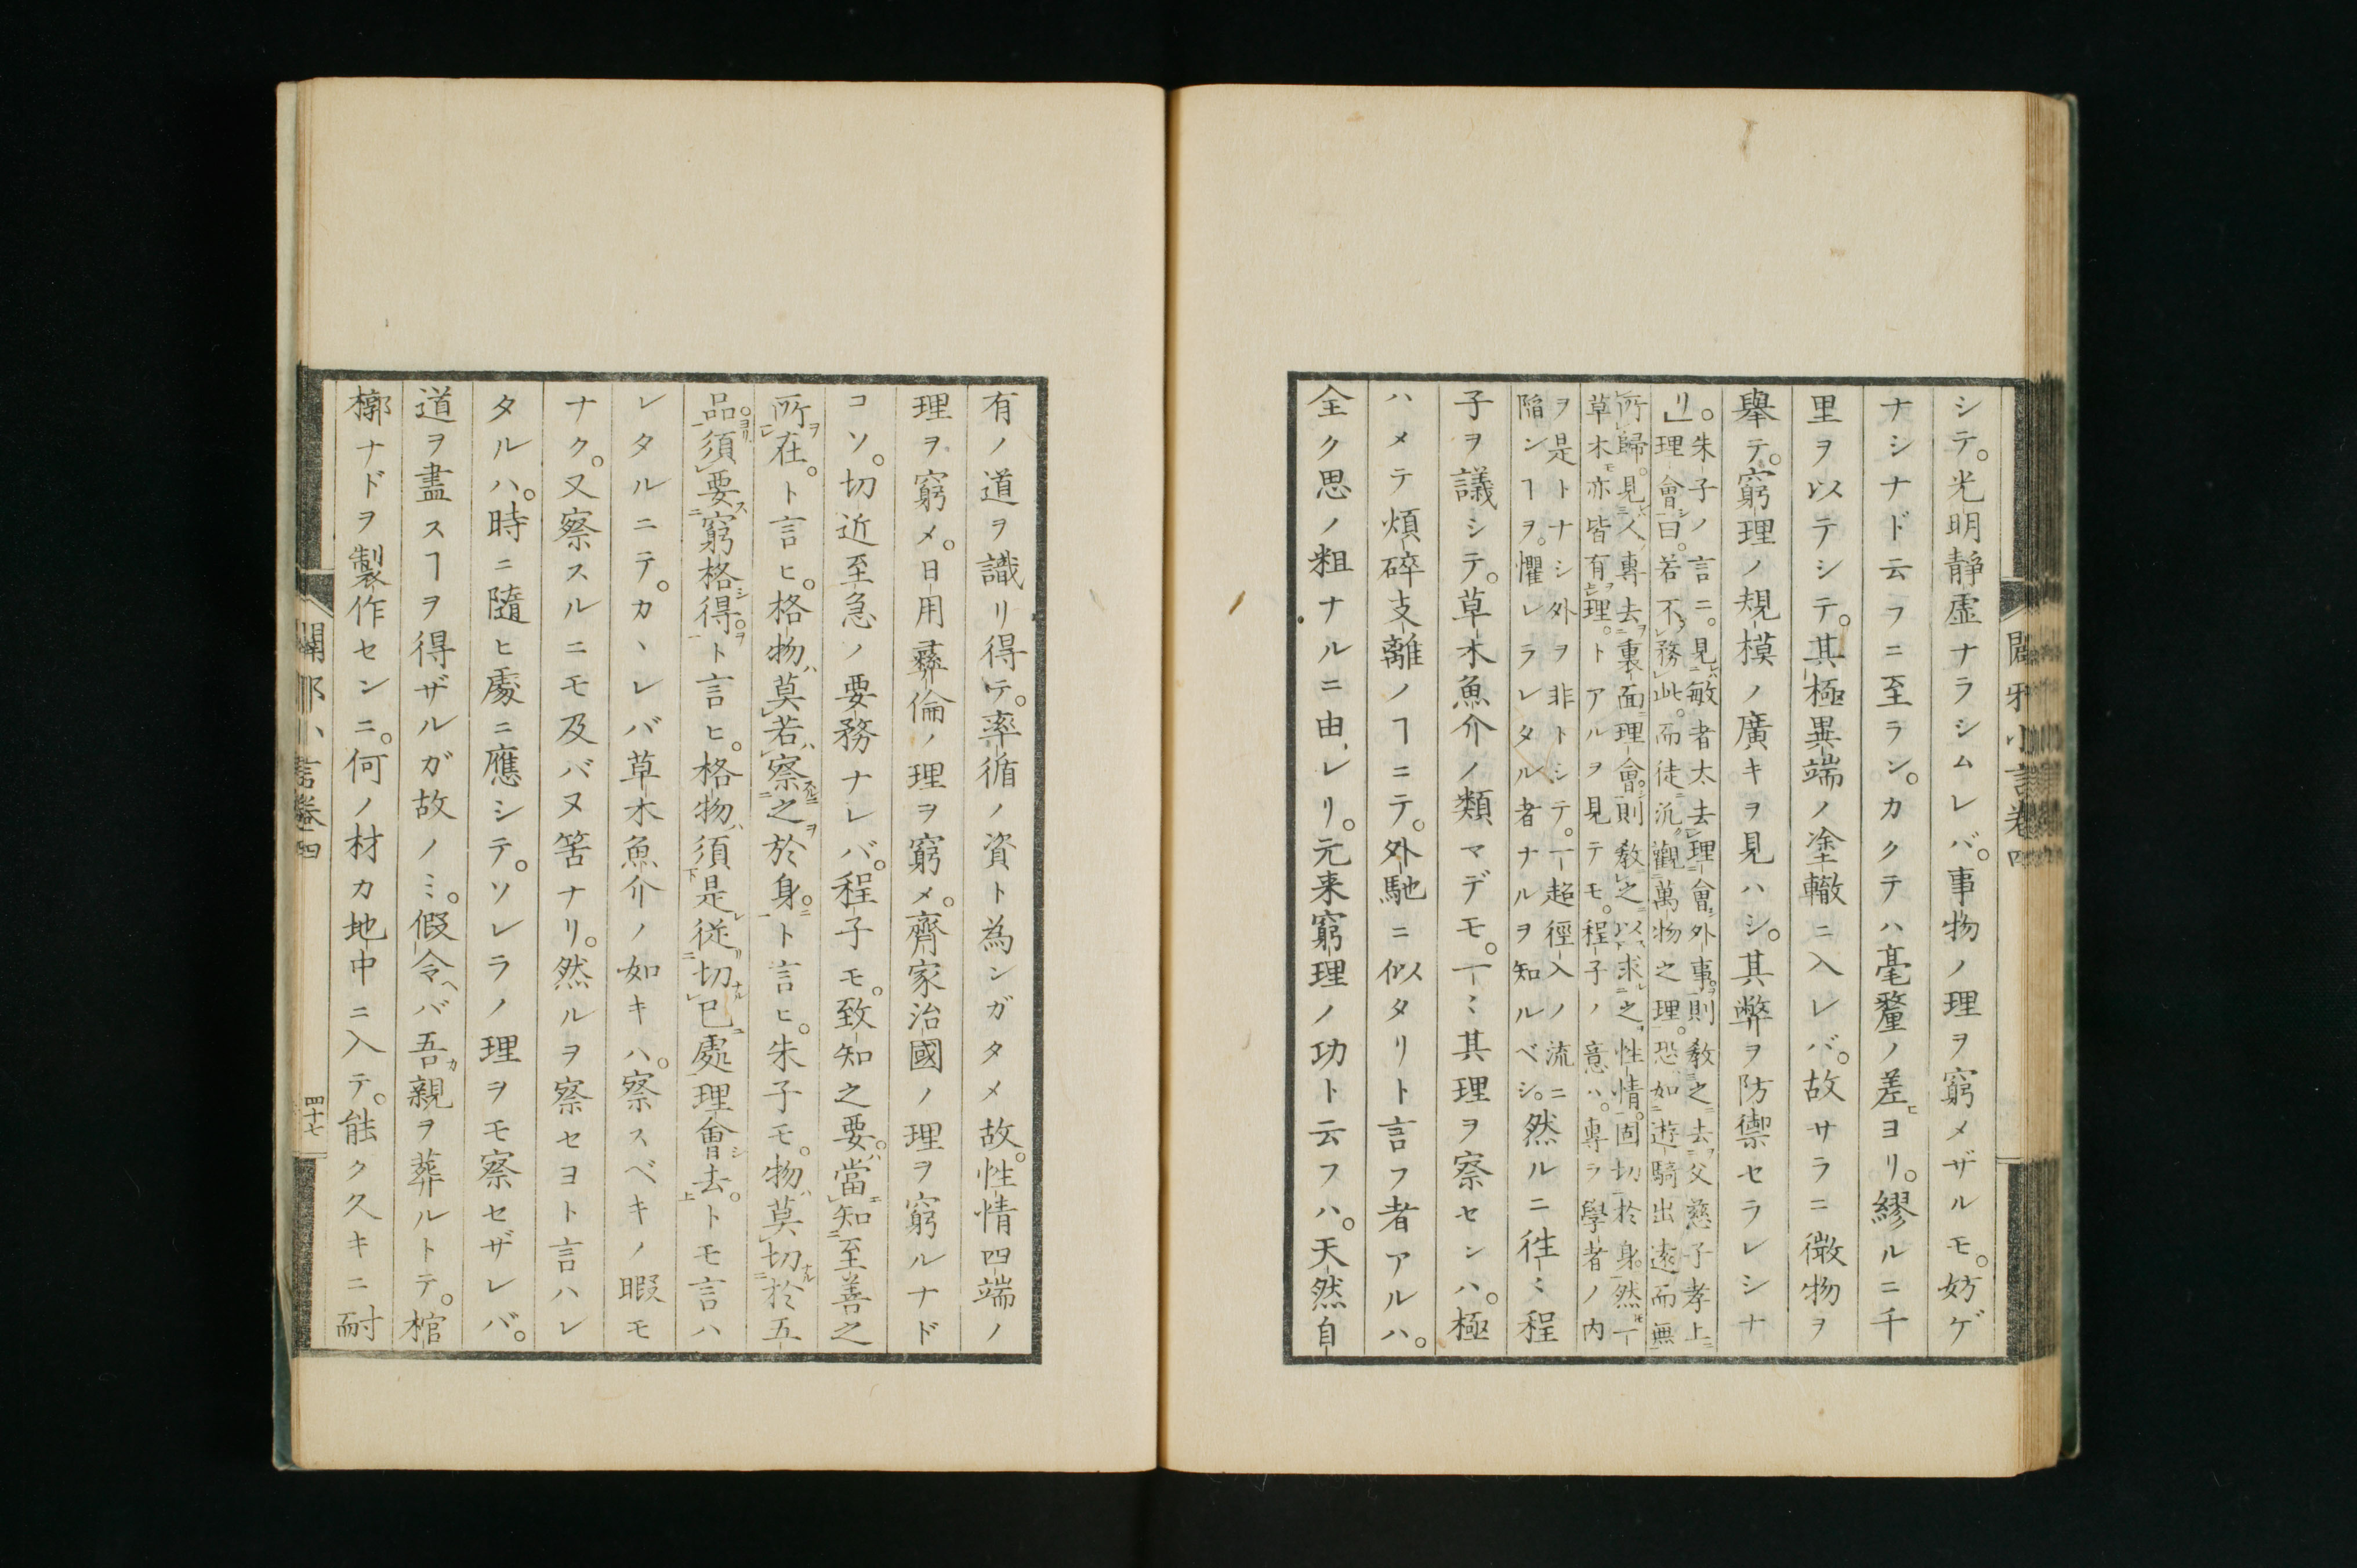 シテ。光明靜虚ナラシムレバ。事物ノ理ヲ窮メザルモ。妨ゲ
ナシナド云フニ至ラン。カクテハ毫釐ノ差ヒヨリ。繆ルニ千
里ヲ以テシテ。其極異端ノ塗轍ニ入レバ。故サラニ微物ヲ
擧テ。窮理ノ規模ノ廣キヲ見ハシ。其弊ヲ防禦セラレシナ
リ。朱子ノ言ニ。見敏者太去理會外事。則教之去父慈子孝上
理會曰。若不務此。而徒汎觀萬物之理。恐如遊騎出遠而無
所歸。見人專去裏面理會。則教之以求之性情。固切於身。然一
草木亦皆有理。トアルヲ見テモ。程子ノ意ハ。專ラ學者ノ内
ヲ是トナシ外ヲ非トシテ。一超徑入ノ流ニ
陷ンヿヲ。懼レラレタル者ナルヲ知ルベシ。然ルニ徃〻程
子ヲ議シテ。草木魚介ノ類マデモ。一〻其理ヲ察センハ。極
ハメテ煩碎支離ノヿニテ。外馳ニ似タリト言フ者アルハ。
全ク思ノ粗ナルニ由レリ。元来窮理ノ功ト云フハ。天然自
闢邪小言卷四
有ノ道ヲ識リ得テ。率循ノ資ト為ンガタメ故。性情四端ノ
理ヲ窮メ。日用彛倫ノ理ヲ窮メ。齊家治國ノ理ヲ窮ルナド
コソ。切近至急ノ要務ナレバ。程子モ。致知之要。當知至善之
所在。ト言ヒ。格物莫若察之於身。ト言ヒ。朱子モ。物莫切於五
品。須要窮格得。ト言ヒ。格物須是従切已處理會去。トモ言ハ
レタルニテ。カヽレバ草木魚介ノ如キハ。察スベキノ暇モ
ナク。又察スルニモ及バヌ筈ナリ。然ルヲ察セヨト言ハレ
タルハ。時ニ隨ヒ處ニ應シテ。ソレラノ理ヲモ察セザレバ。
道ヲ盡スヿヲ得ザルガ故ノミ。假令ヘバ吾カ親ヲ葬ルトテ。棺
槨ナドヲ製作センニ。何ノ材カ地中ニ入テ。能ク久キニ耐
闢邪小言卷四
四十七